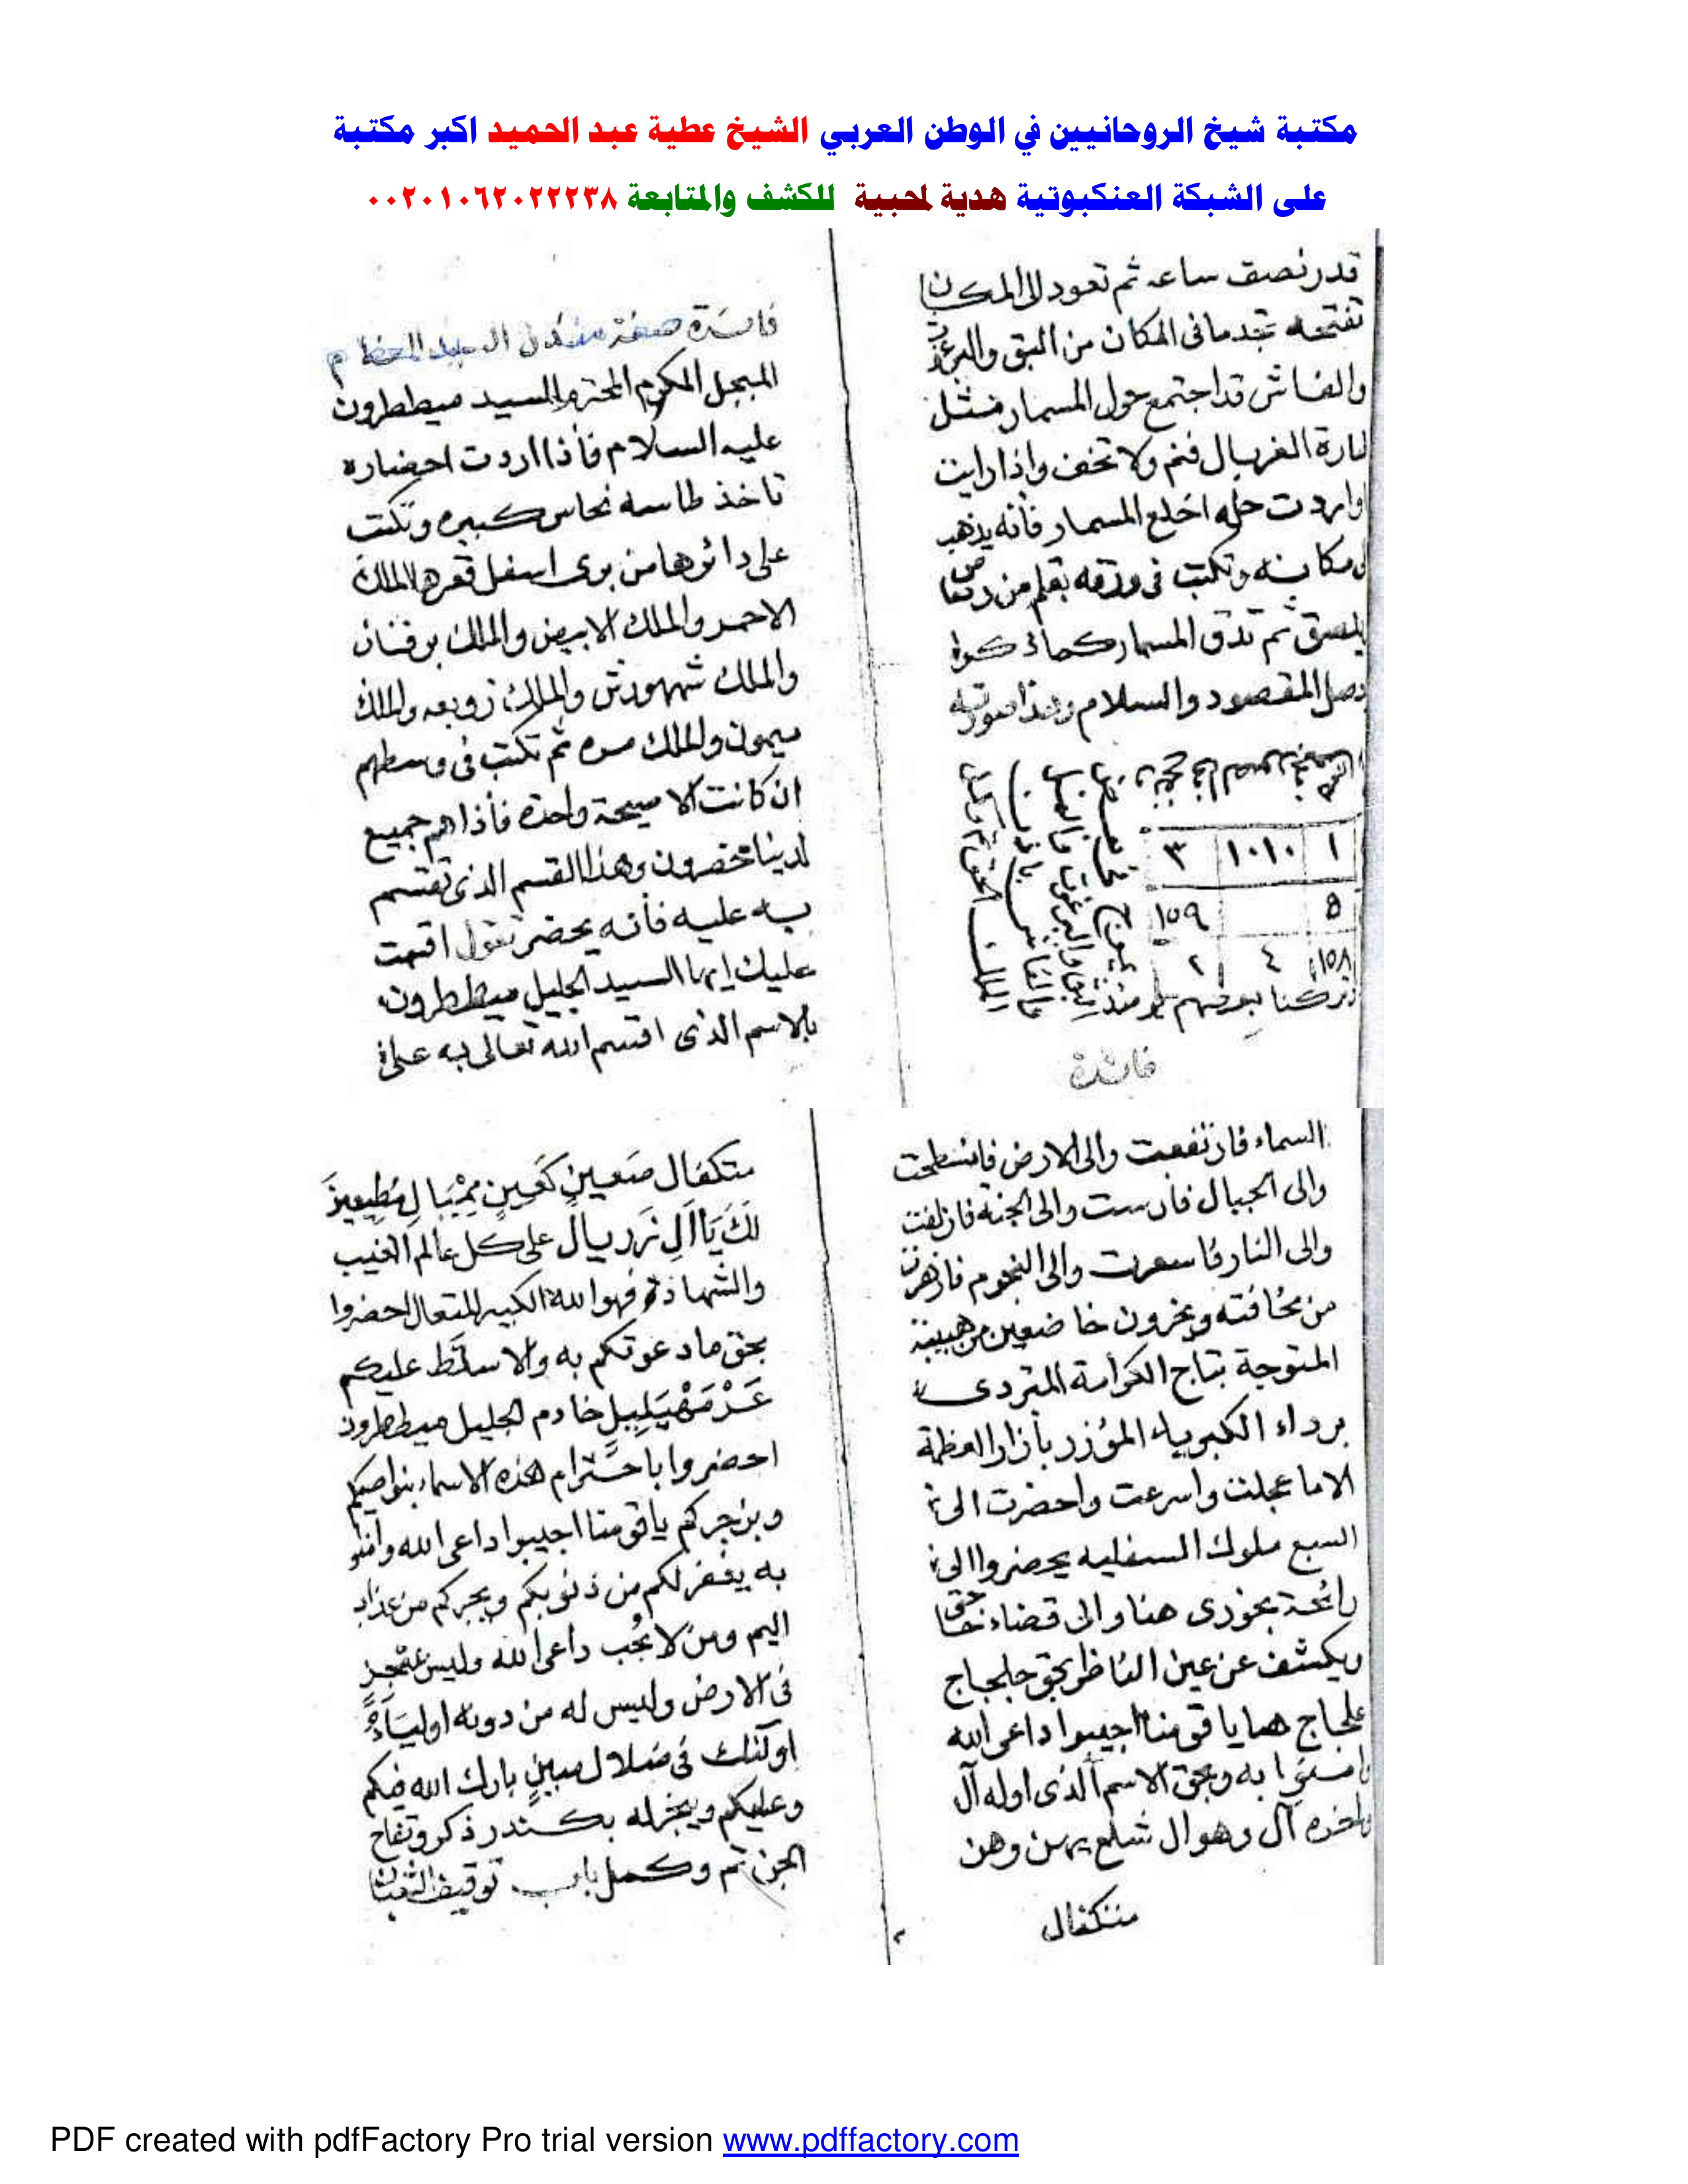 مكتبة شيخ الروحانيين في الوطن العربي الشيخ عطية عبد الحميد اكبر مكتبة
على الشبكة العنكبوتية هدية لمحبية للكشف والمتابعة ٠٠٢٠١٠٦٢٠٢٢٢٣٨
قدر نصف ساعه ثم تعود الى المكان
تفتحه تجد ما فى المكان من البق والبرغوث
والفاش قد اجتمع حول المسمار مثل
الغربال فنم ولا تخف واذا رايت
واردت حله اخلع المسمار فأنه يذهب
مكانه وتكتب فى ورقه بقلم من رصاص
يلسق ثم تدق المسمار كما ذكرنا
المقصود والسلام وهذا صورته
١ ١٠١٠ ٣
٥ ١٥٩
١٥٨ ٤ ٢
وتركنا بعضهم يومئذ
فائدة
فائدة صفة مندل السيد المعظم
المبجل المكرم المحترم السيد ميططرون
عليه السلام فأذا اردت احضاره
تاخذ طاسه نحاس كبيره وتكتب
على دائرها من برى اسفل قعرها الملك
الاحمر والملك الابيض والملك برقان
والملك شمهورش والملك زوبعه والملك
ميمون والملك مره ثم تكتب فى وسطهم
ان كانت الا صيحة واحدة فأذا هم جميع
لدينا محضرون وهذا القسم الذى تقسم
به عليه فأنه يحضر تقول اقسمت
عليك ايها السيد الجليل ميططرون
بالاسم الذى اقسم الله تعالى به على
السماء فارتفعت والى الارض فانسطحت
والى الجبال فأرست والى الجنة فازلفت
والى النار فاسعرت والى النجوم فازهرت
من مخافته ويخرون خاضعين من هيبته
المتوجة بتاج الكرامة المتردى
برداء الكبرياء المؤزر بأزار العظمة
الا ما عجلت واسرعت واحضرت الى
السبع ملوك السفليه يحضروا الى
رائحة بخورى هنا والى قضاء
ويكشف عن عين الناظر بحق جلجاج
علجاج هيا يا قومنا اجيبوا داعى الله
به وبحق الاسم الذى اوله آل
واخره آل وهو ال شلع يهن وهن
متكفال
متكفال صعين كعين مميال مطيعين
لك يا آل زريال على كل عالم الغيب
والشهادة فهو الله الكبير المتعال احضروا
بحق ما دعوتكم به والا سلط عليكم
خادم الجليل ميططرون
احضروا باحترام هذه الاسماء بنواصيكم
وبزجركم يا قومنا اجيبوا داعى الله وآمنو
به يغفر لكم من ذنوبكم ويجركم من عذاب
اليم ومن لا يجب داعى الله وليس بمعجز
فى الارض وليس له من دونه اولياء
اولئك فى ضلال مبين بارك الله فيكم
وعليكم ويبخر له بكندر ذكر وتفاح
الجن تم وكمل باب توقيف الثعبان
PDF created with pdfFactory Pro trial version www.pdffactory.com